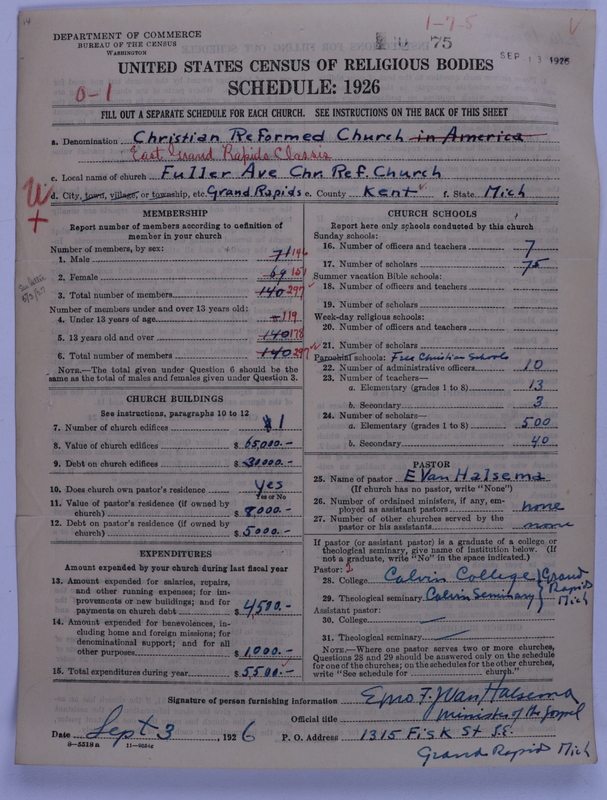 1-7-5
DEPARTMENT OF COMMERCE
BUREAU OF THE CENSUS
WASHINGTON
75
SEP 13 1926
UNITED STATES CENSUS OF RELIGIOUS BODIES
SCHEDULE: 1926
0-1
FILL OUT A SEPARATE SCHEDULE FOR EACH CHURCH. SEE INSTRUCTIONS ON THE BACK OF THIS SHEET
a. Denomination Christian Reformed Church in America
East Grand Rapids Classis
c. Local name of church Fuller Ave Chr. Ref. Church
d. City, town, village, or township, etc. Grand Rapids e. County Kent f. State Mich
MEMBERSHIP
Report number of members according to definition of
member in your church
Number of members, by sex:
1. Male 71 146
2. Female 69 151
3. Total number of members 140 297
Number of members under and over 13 years old:
4. Under 13 years of age - 119
5. 13 years old and over 140 178
6. Total number of members 140 297
NOTE.—The total given under Question 6 should be the
same as the total of males and females given under Question 3.
CHURCH BUILDINGS
See instructions, paragraphs 10 to 12
7. Number of church edifices 1
8. Value of church edifices $ 65,000.-
9. Debt on church edifices $ 30,000.-
10. Does church own pastor's residence Yes
Yes or No
11. Value of pastor's residence (if owned by
church) $ 8,000.-
12. Debt on pastor's residence (if owned by
church) $ 5000.-
EXPENDITURES
Amount expended by your church during last fiscal year
13. Amount expended for salaries, repairs,
and other running expenses; for im-
provements or new buildings; and for
payments on church debt $ 4,500.-
14. Amount expended for benevolences, in-
cluding home and foreign missions; for
denominational support; and for all
other purposes $ 1,000.-
15. Total expenditures during year $ 5500.-
CHURCH SCHOOLS
Report here only schools conducted by this church
Sunday schools:
16. Number of officers and teachers 7
17. Number of scholars 75
Summer vacation Bible schools:
18. Number of officers and teachers
19. Number of scholars
Week-day religious schools:
20. Number of officers and teachers
21. Number of scholars
Parochial schools: Free Christian Schools
22. Number of administrative officers 10
23. Number of teachers—
a. Elementary (grades 1 to 8) 13
b. Secondary 3
24. Number of scholars—
a. Elementary (grades 1 to 8) 500
b. Secondary 40
PASTOR
25. Name of pastor E Van Halsema
(If church has no pastor, write "None")
26. Number of ordained ministers, if any, em-
ployed as assistant pastors none
27. Number of other churches served by the
pastor or his assistants none
If pastor (or assistant pastor) is a graduate of a college or
theological seminary, give name of institution below. (If
not a graduate, write "No" in the space indicated.)
Pastor:
28. College Calvin College } Grand
29. Theological seminary Calvin Seminary } Rapids Mich
Assistant pastor:
30. College —
31. Theological seminary —
NOTE.—Where one pastor serves two or more churches,
Questions 28 and 29 should be answered only on the schedule
for one of the churches; on the schedules for the other churches,
write "See schedule for church."
Signature of person furnishing information Emo F. J. Van Halsema
Official title Minister of the Gospel
Date Sept 3, 1926 P. O. Address 1315 Fisk St S.E.
8-5518 a
Grand Rapids Mich